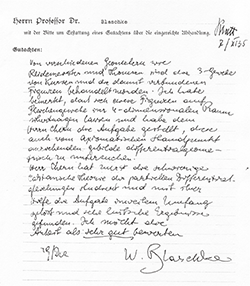 Herrn Professor Dr. Blaschke
mit der Bitte um Erstattung eines Gutachtens über die eingereichte Abhandlung.
Gutachten:
Von verschiedenen Geometern wie
Reidemeister und Thomsen sind die 3-Gewebe
von Kurven und die damit verbundenen
Figuren behandelt worden. Ich habe
bemerkt, daß sich diese Figuren auf
im 2r-dimensionalen Raum
lassen und habe dem
Herrn Chern die Aufgabe gestellt, diese
auch vom
Gebilde differentialgeome-
trisch zu untersuchen.
Herr Chern hat zuerst die schwierige
Cartansche Theorie der partiellen Differential-
gleichungen studiert und mit ihrer
Hilfe die Aufgabe in weitem Umfang
gelöst und sehr hübsche Ergebnisse
gefunden. Ich möchte die
Arbeit als sehr gut bewerten.
W. Blaschke